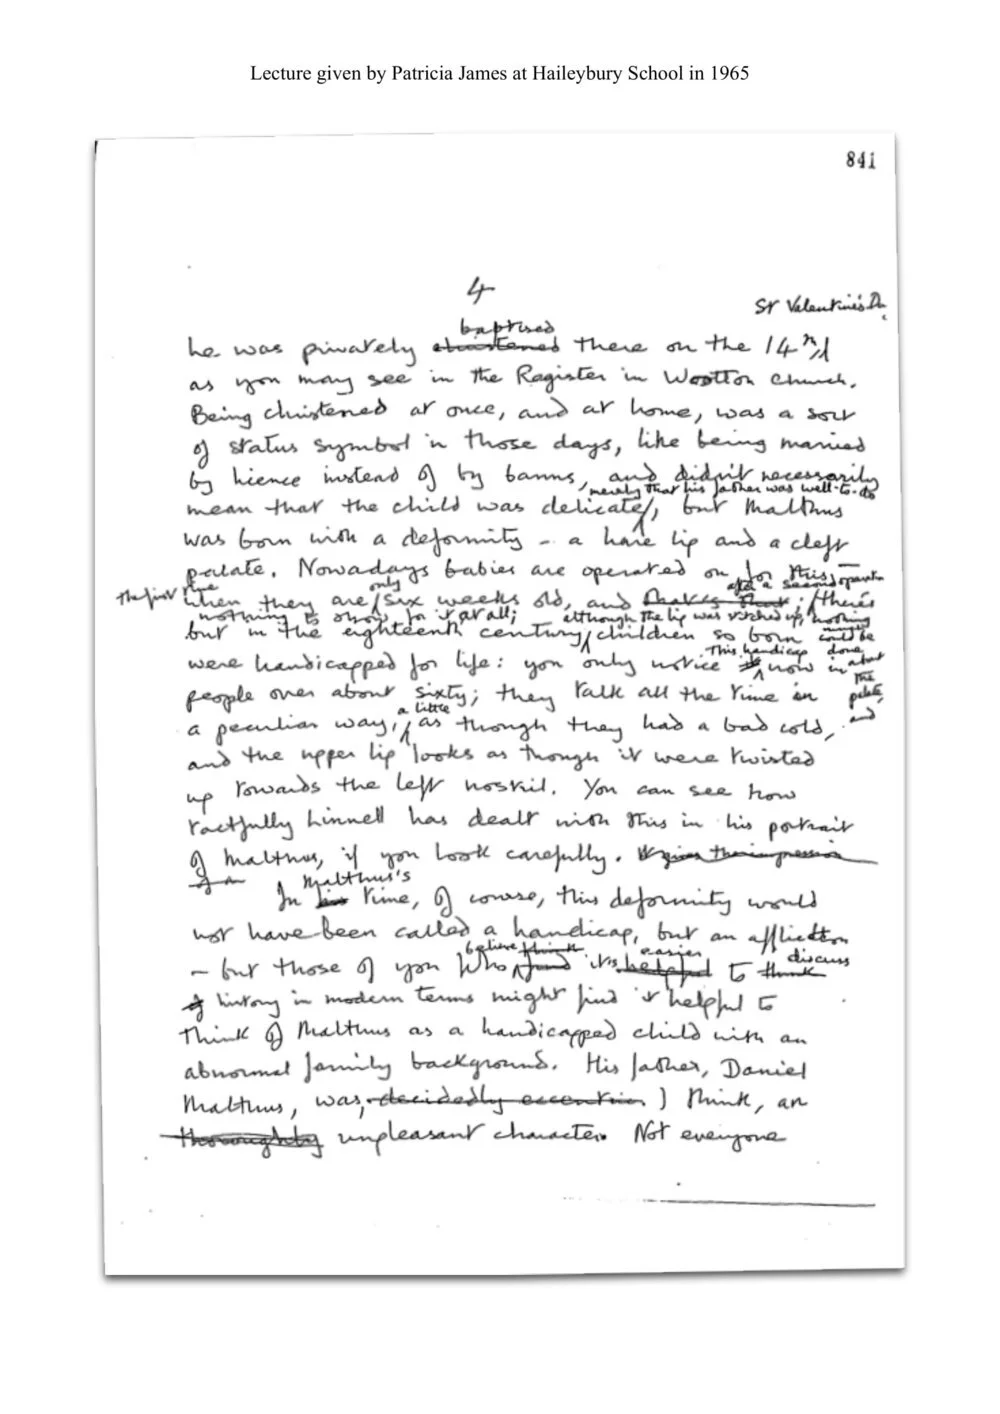 Lecture given by Patricia James at Haileybury School in 1965
841
4
St Valentine's Da
baptised
he was privately christened there on the 14th,
as you may see in the Register in Wootton Church.
Being christened at once, and at home, was a sort
of status symbol in those days, like being married
by licence instead of by banns, and didn't necessarily
merely that his father was well-to-do
mean that the child was delicate, but Malthus
was born with a deformity – a hare lip and a cleft
palate. Nowadays babies are operated on for this
after a second operation
The first time only
when they are six weeks old, and that's that; there's
nothing to show for it at all; although the lip was stitched up, nothing
but in the eighteenth century children so born could be
This handicap done
were handicapped for life: you only notice it now in about
the
people over about sixty; they talk all the time in palate,
a little
a peculiar way, as though they had a bad cold, and
and the upper lip looks as though it were twisted
up towards the left nostril. You can see how
tactfully Linnell has dealt with this in his portrait
of Malthus, if you look carefully. It gives the impression
of an
Malthus's
In his time, of course, this deformity would
not have been called a handicap, but an affliction
believe think easier discuss
– but those of you who find it's helpful to think
of history in modern terms might find it helpful to
think of Malthus as a handicapped child with an
abnormal family background. His father, Daniel
Malthus, was, decidedly eccentric. I think, an
thoroughly unpleasant character. Not everyone